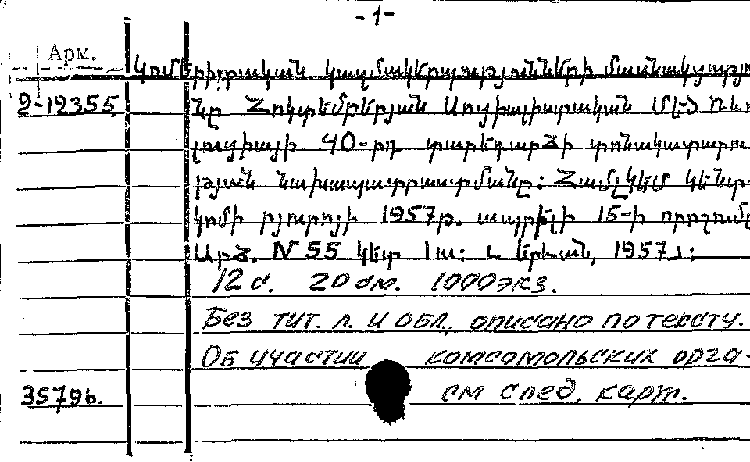 -1-
Арм.
Կոմերիտական կազմակերպությունների մասնակցությու
2-12355 նը Հոկտեմբերյան Սոցիալիստական Մեծ Ռևո
լյուցիայի 40-րդ տարեդարձի տոնակատարու
թյան նախապատրաստմանը: ՀամԼԿԵՄ Կենտ
կոմի բյուրոյի 1957թ. ապրիլի 15-ի որոշումը
Արձ. N 55 կետ 1ա: Լ Երևան, 1957 г:
12 с. 20 см. 1000 экз.
Без тит. л. и обл., описано по тексту.
Об участии комсомольских орга-
3579б. см след. карт.